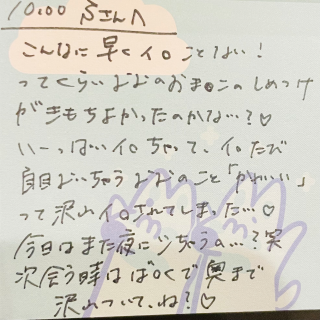 10:00 Sさんへ
こんなに早くイロことない!
ってくらいななのおま●このしめつけ
がきもちよかったのかな…?♡
いーっぱいイロちゃって、イロたび
自目ないちゃうななのこと「かわいい」
って沢山イロされてしまった…♡
今日はまた夜にシちうの…?笑
次会う時はば●くで奥まで
沢山ついて、ね?♡